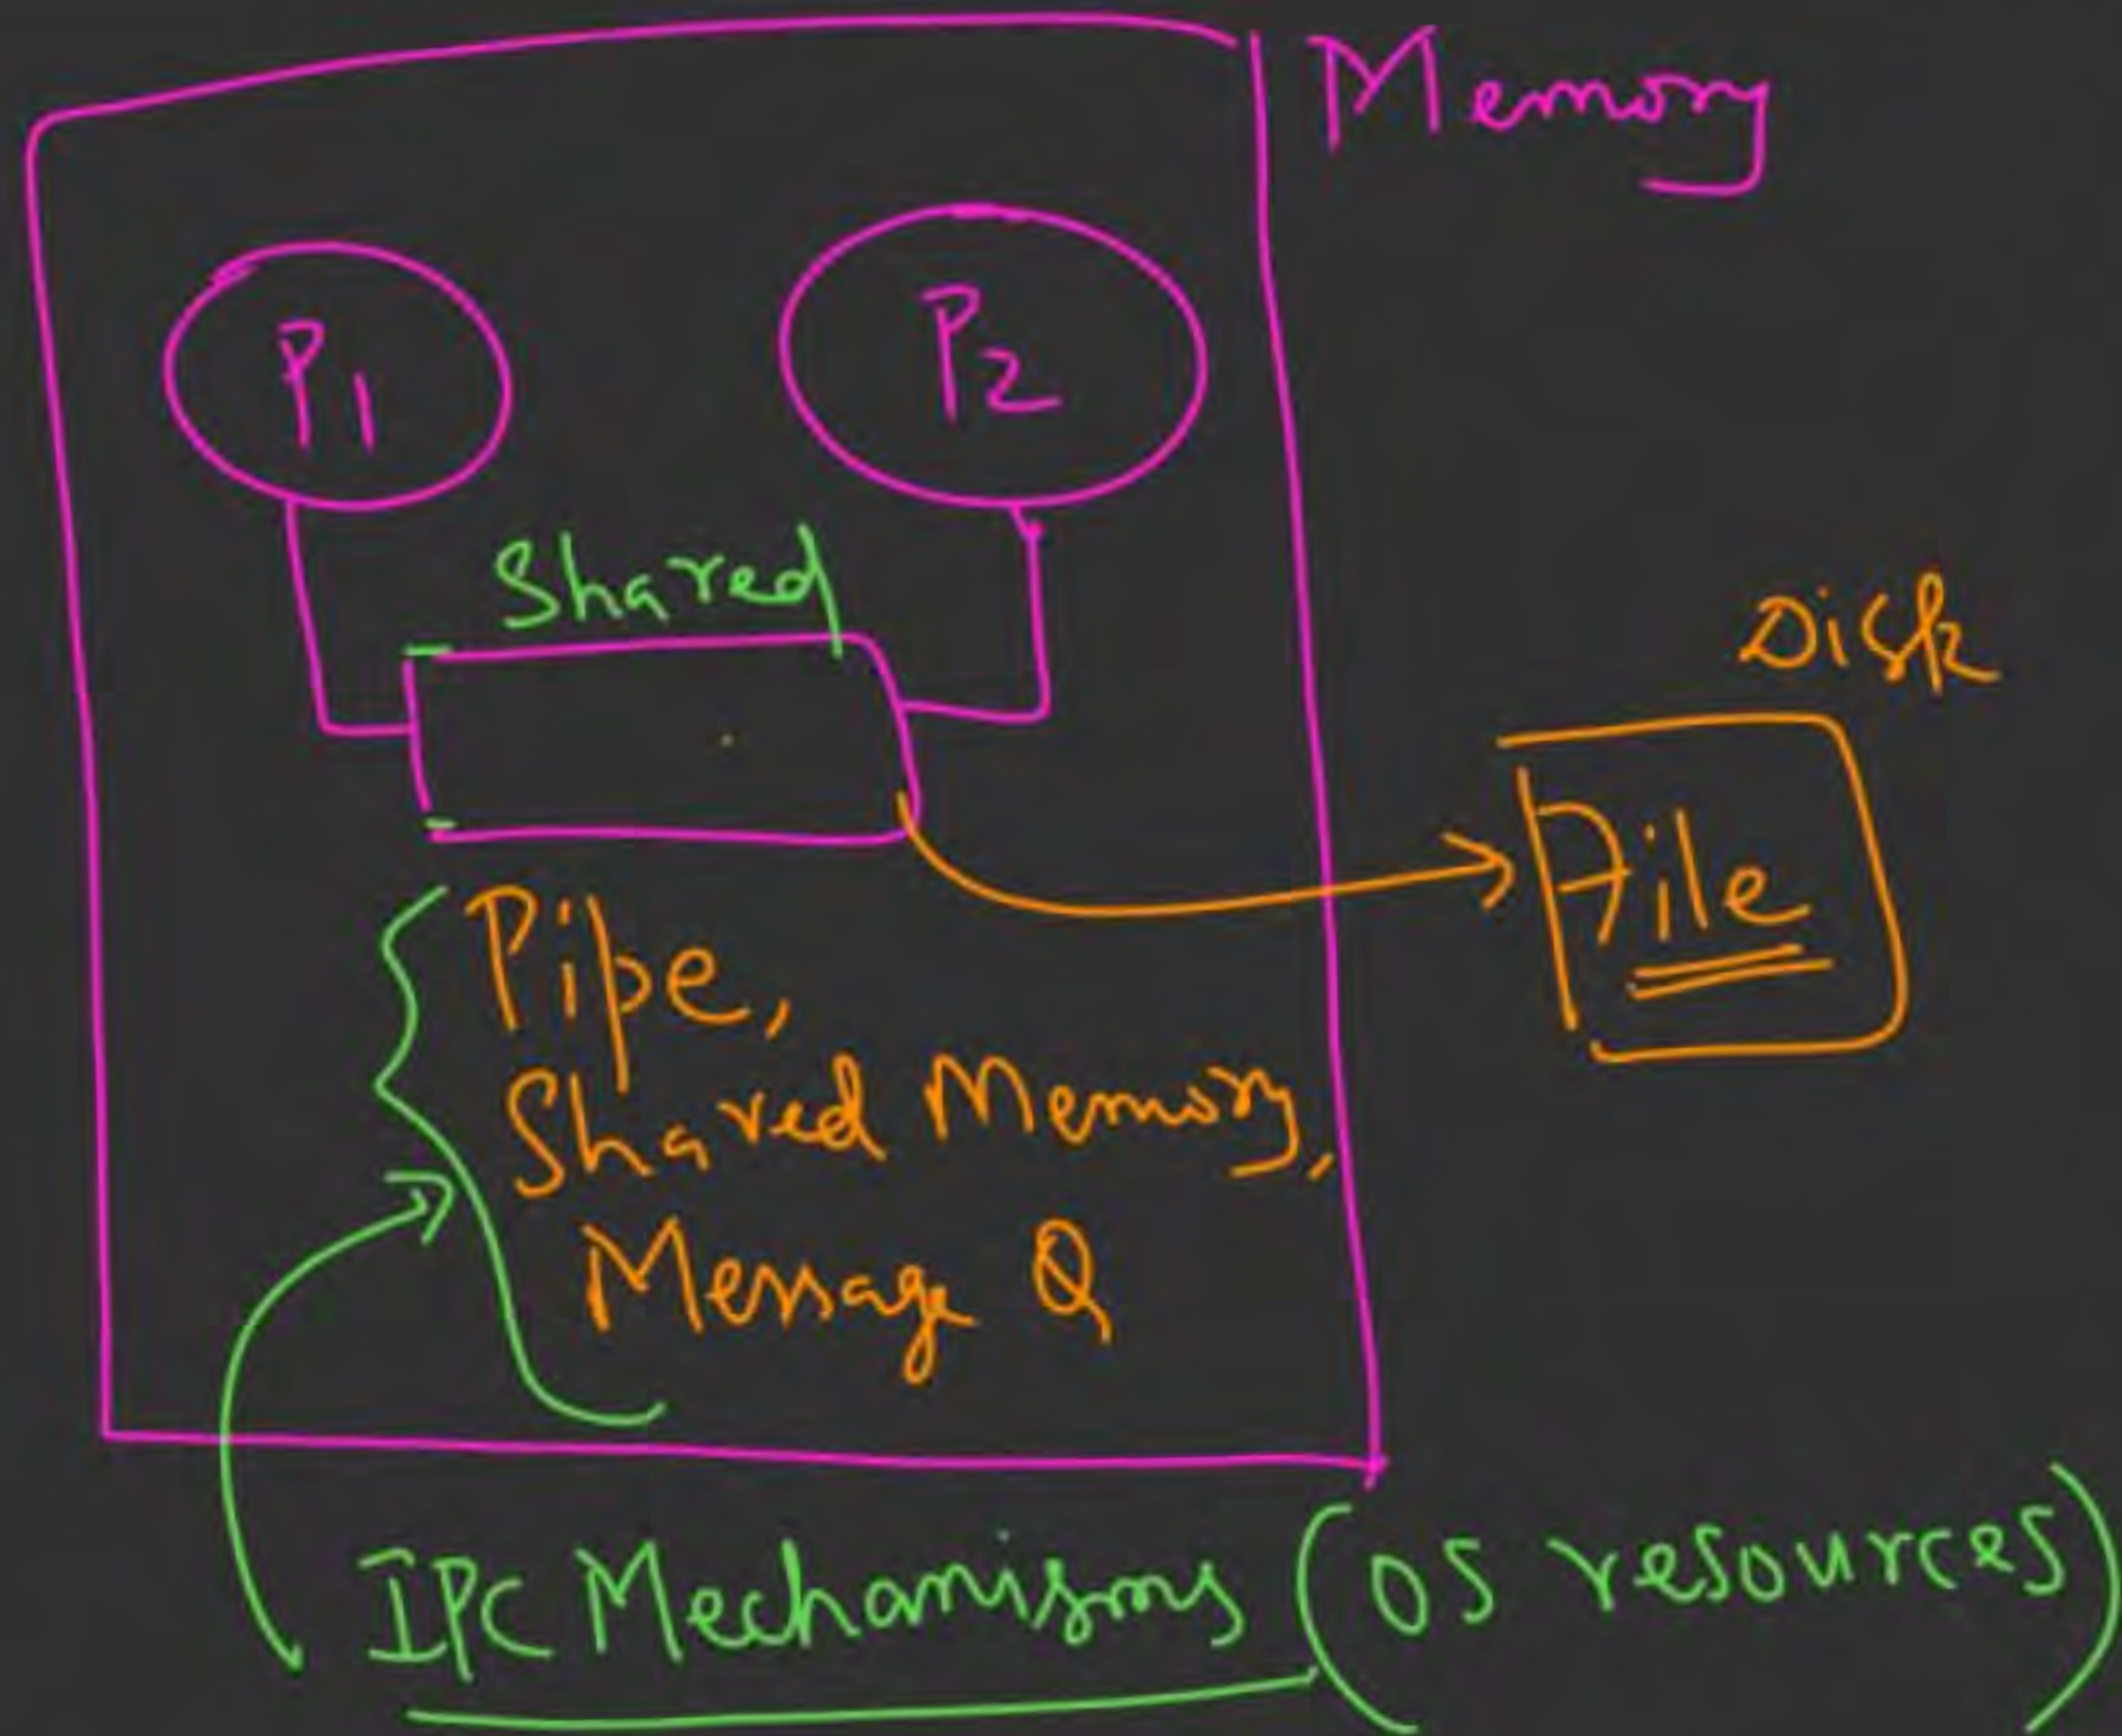 Memory
P1
P2
Shared
Disk
File
Pipe,
Shared Memory,
Message Q
IPC Mechanisms (OS resources)